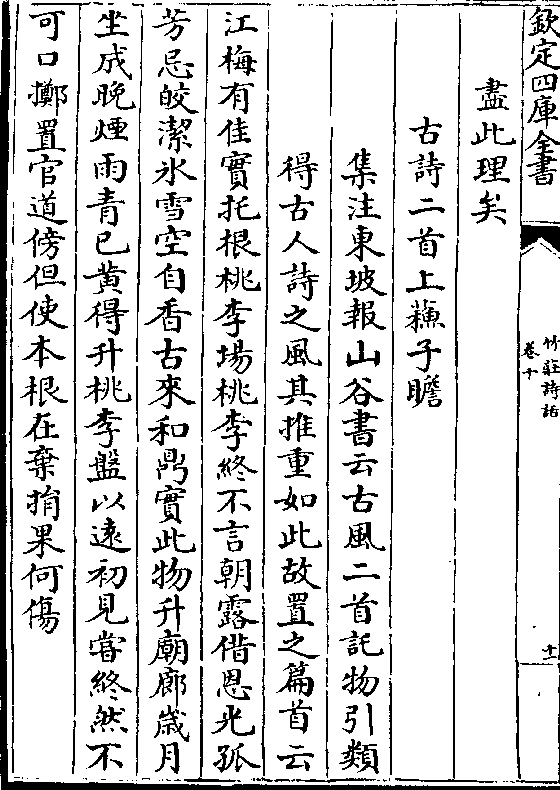 欽定四庫全書
竹莊詩話
卷十
十一
盡此理矣
古詩二首上蘓子瞻
集注東坡報山谷書云古風二首託物引類
得古人詩之風其推重如此故置之篇首云
江梅有佳實托根桃李場桃李終不言朝露借恩光孤
芳忌皎潔氷雪空自香古來和鼎實此物升廟廊嵗月
坐成晚煙雨青已黄得升桃李盤以逺初見嘗終然不
可口擲置官道傍但使本根在棄捐果何傷